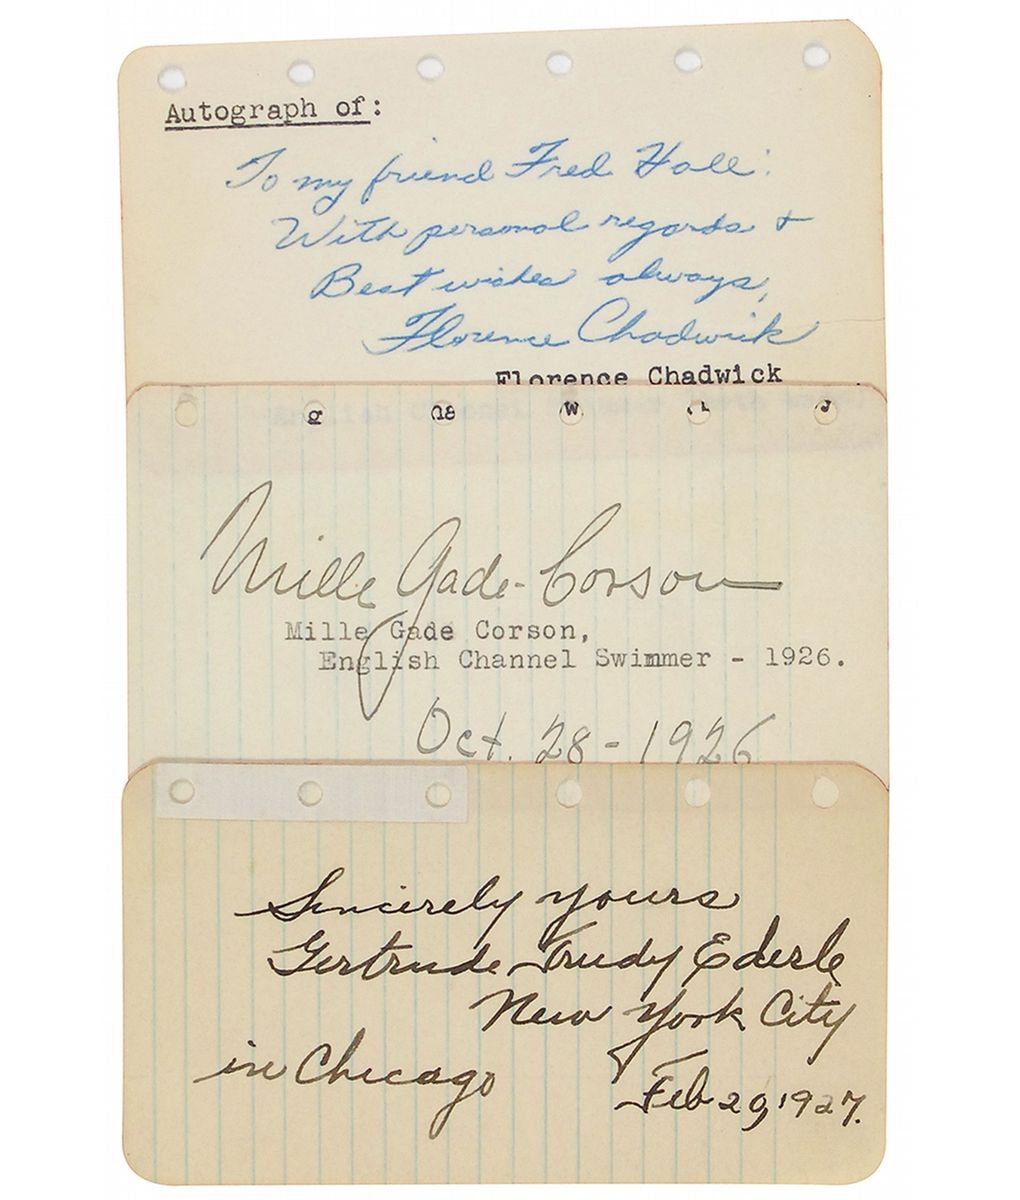 Autograph of:
To my friend Fred Hall:
With personal regards &
Best wishes always,
Florence Chadwick
Florence Chadwick
g na w
Mille Gade-Corson
Mille Gade Corson,
English Channel Swimmer - 1926.
Oct. 28-1926
Sincerely yours
Gertrude Trudy Ederle
New York City
in Chicago
Feb 20, 1927.